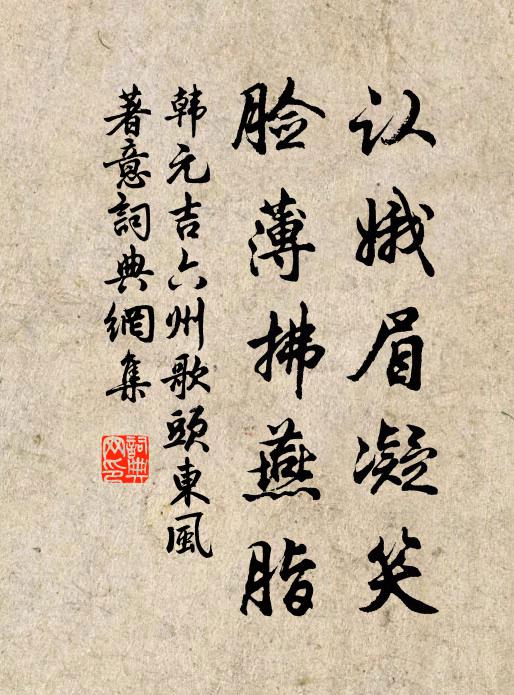 认娥眉凝笑
脸薄拂燕脂
韩元吉六州歌頭東風
著意詞典網集
詞典网印